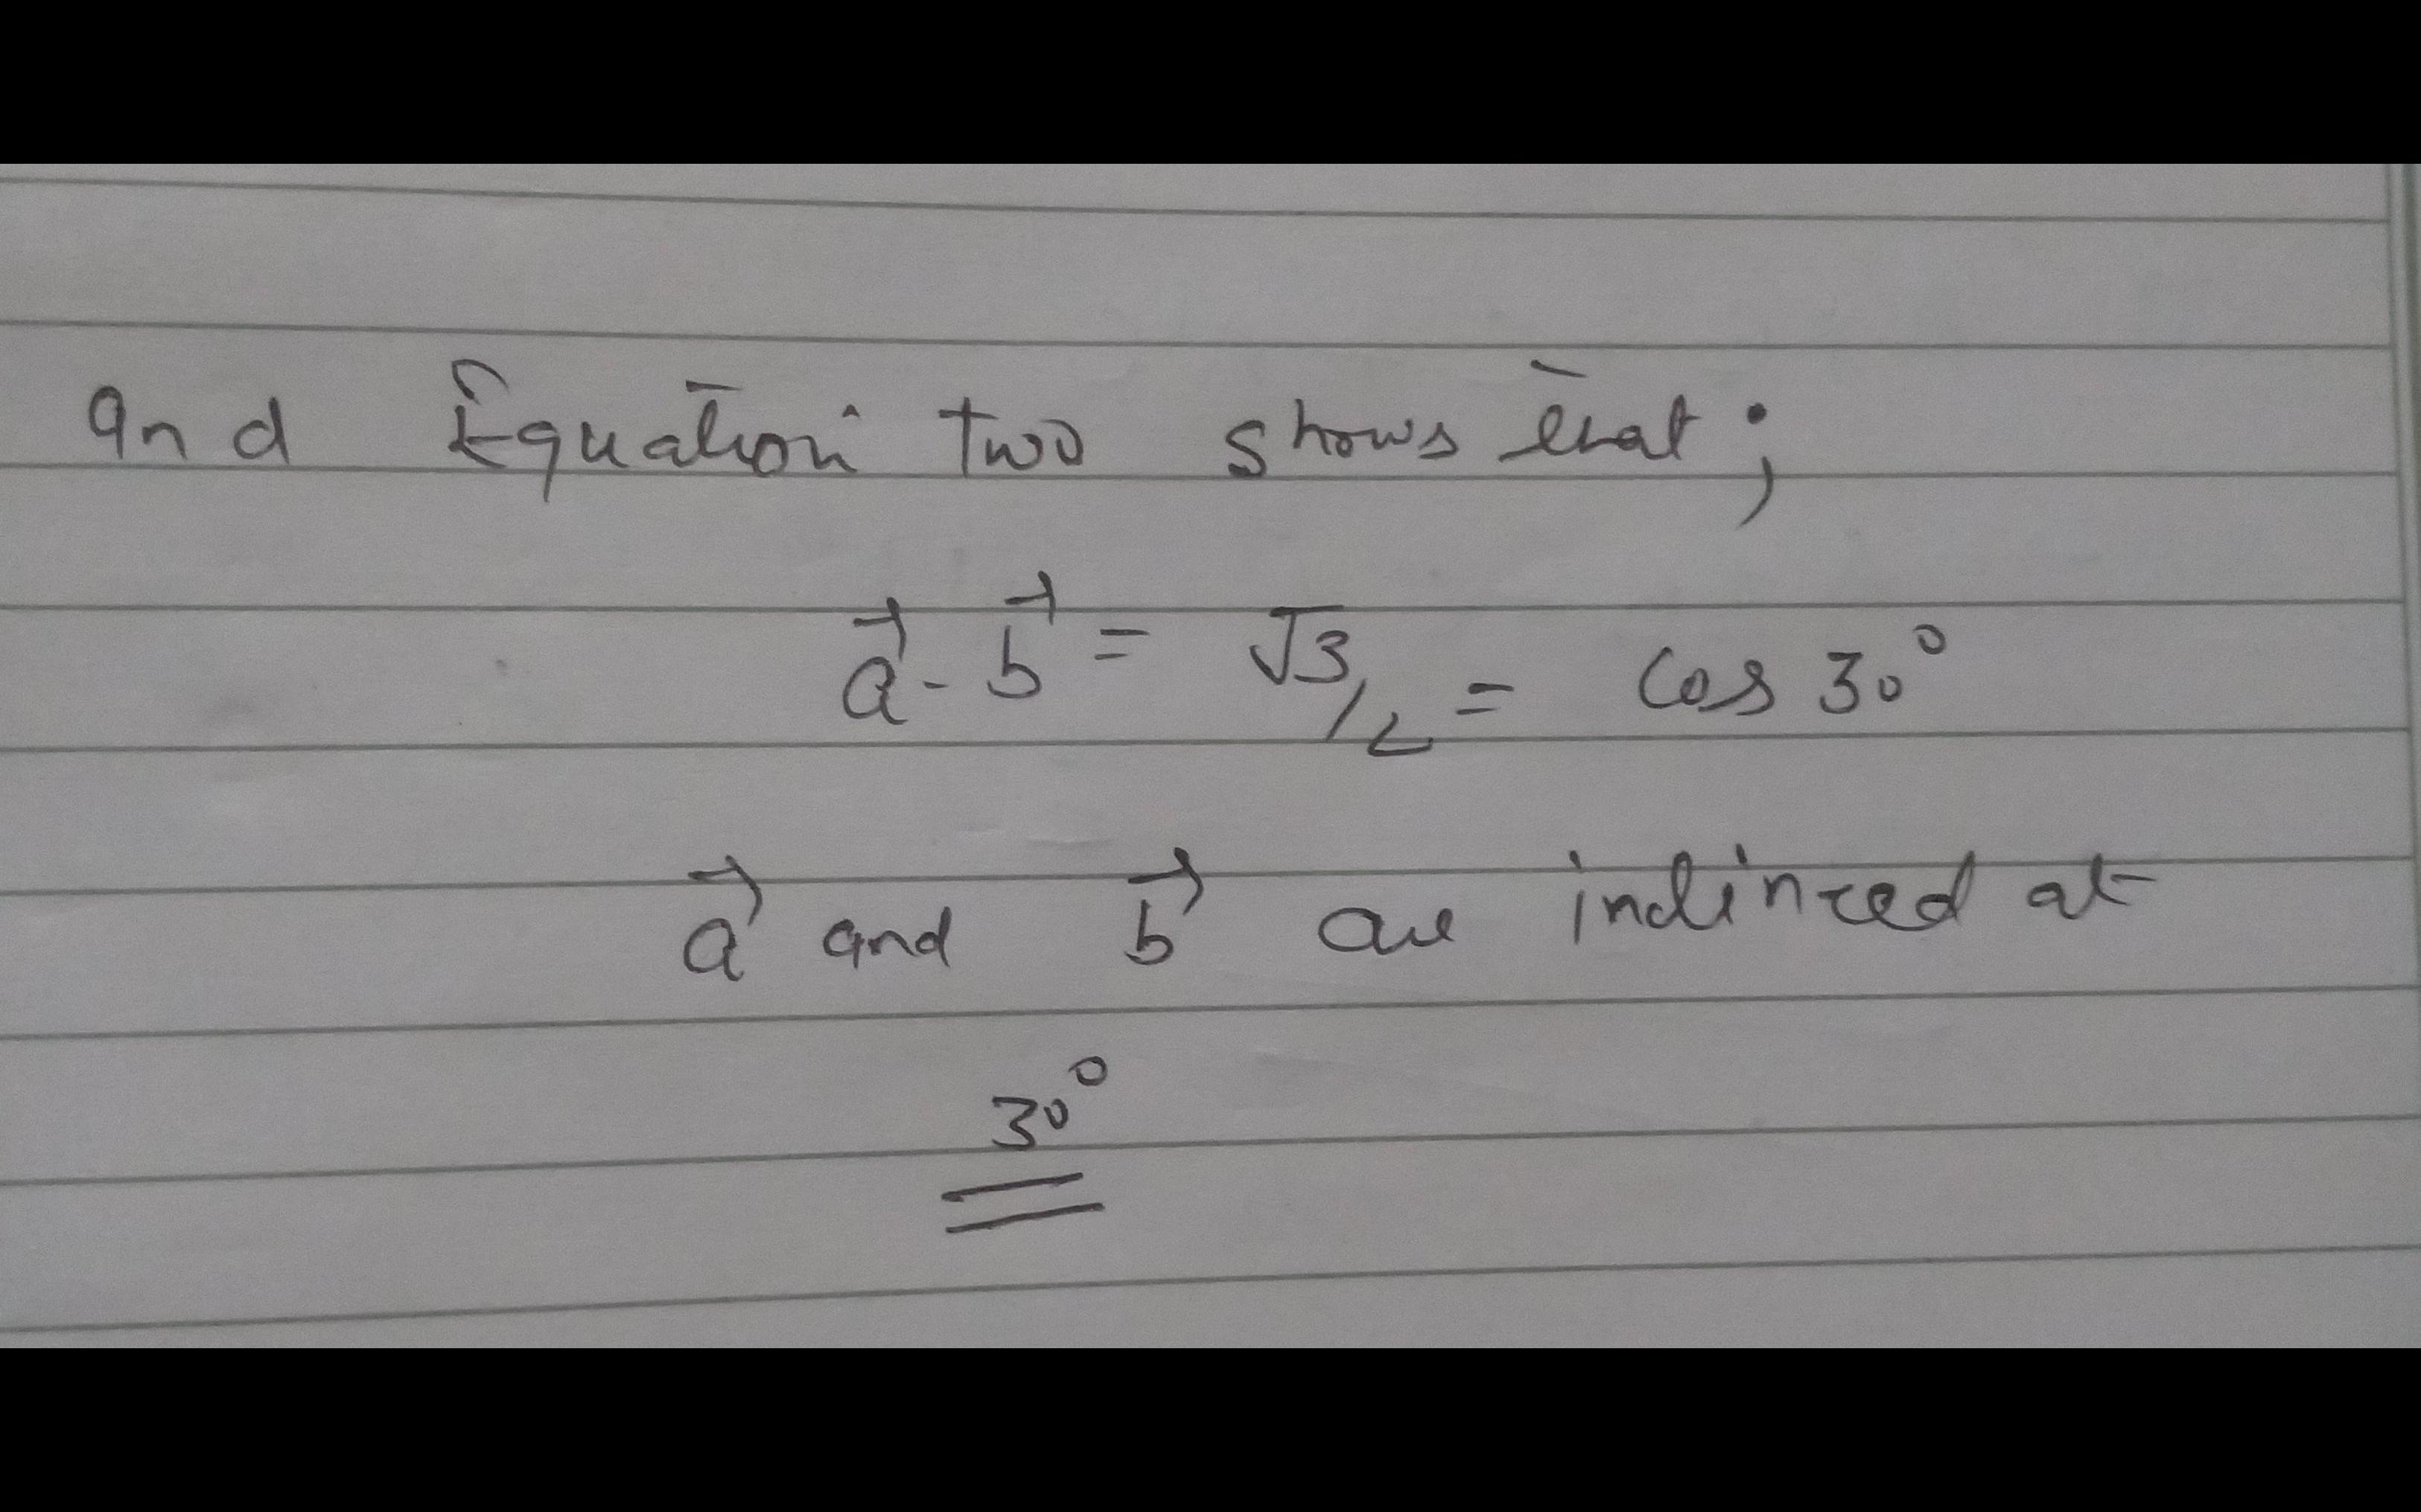 and Equation two shows that;
a⃗ - b⃗ = √3/2 = cos 30°
a⃗ and b⃗ are inclined at
30°